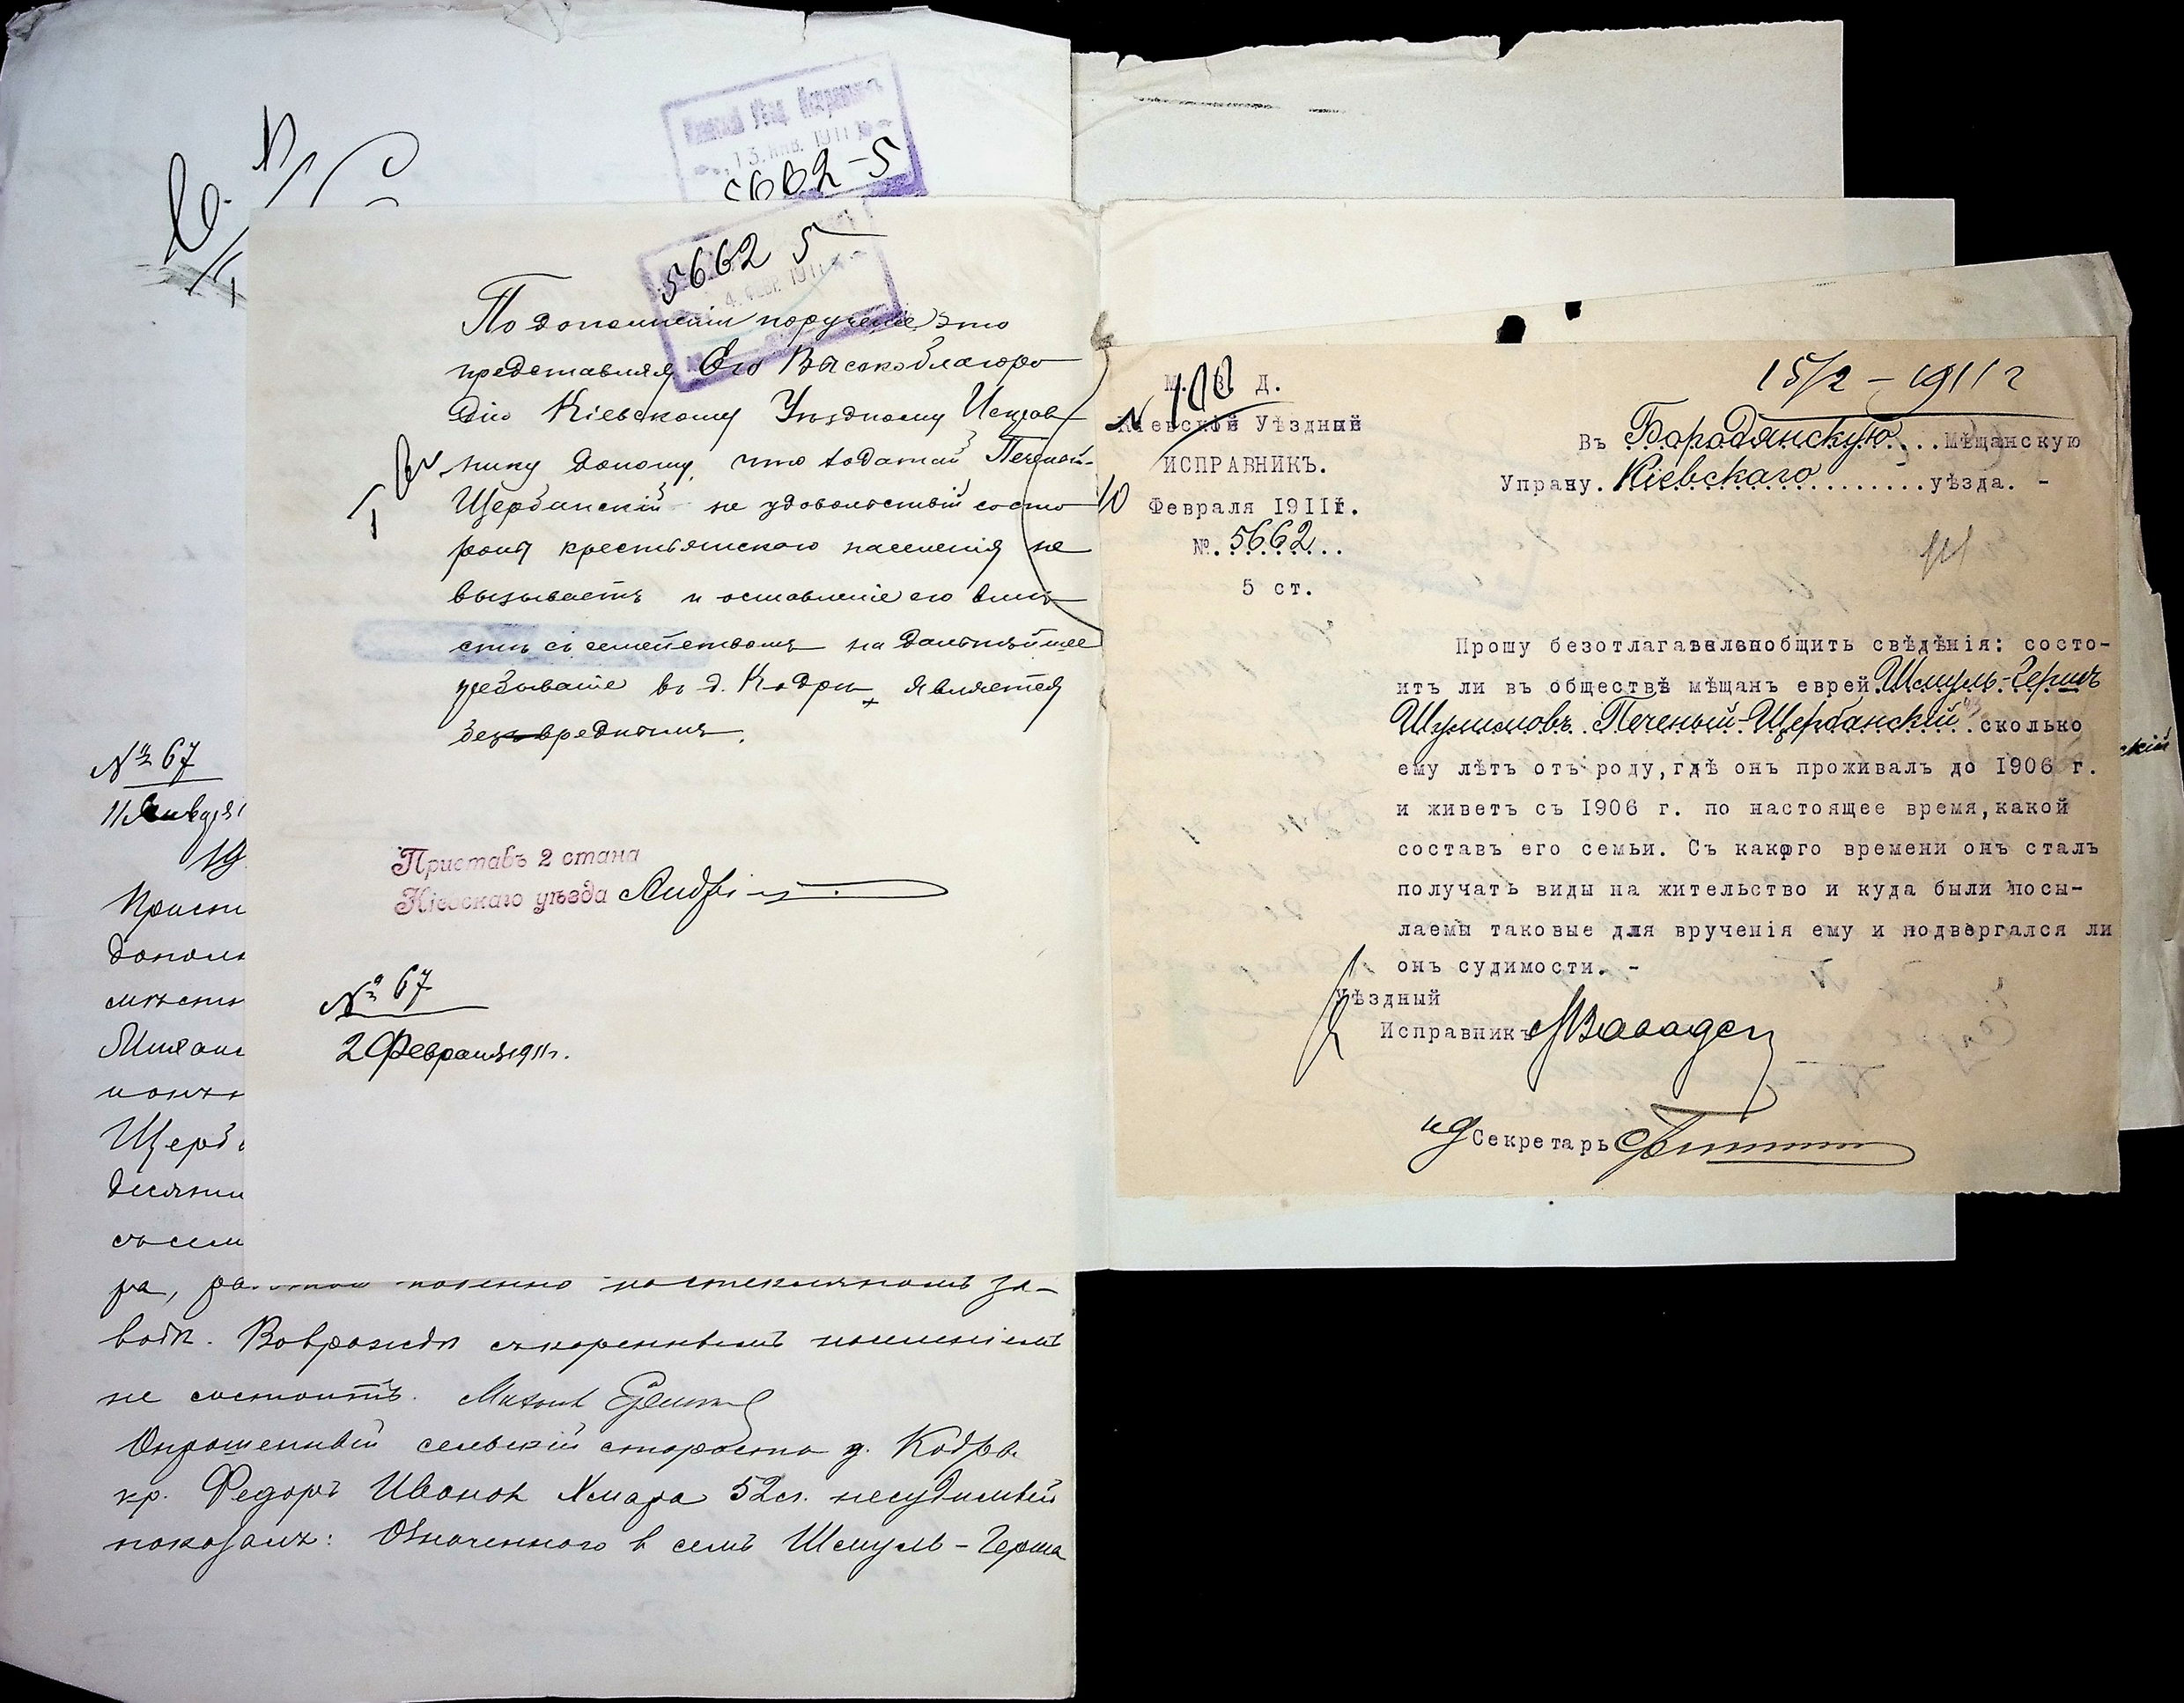 5662-5
5662 5
По дополненіи порученіе это
представляя Его Высокоблагоро
дію Кіевскому Уѣздному Исправ
нику доношу, что ходатай Печеный-
Щербанскій неудовольствій со сто
роны крестьянскаго населенія не
вызываетъ и оставленіе его вмѣ
стѣ съ семействомъ на дальнѣйшее
пребываніе въ д. Кодрѣ является
безвреднымъ.
Приставъ 2 стана
Кіевскаго уѣзда
№ 67
2 Февраля 1911 г.
№ 67
11 Января
19
Прист
дополн
мѣстн
Щерб
десяти
съ сем
ра, по стеклянномъ за-
водѣ. Во враждѣ съ кореннымъ населеніемъ
не состоитъ.
Опрошенный сельскій староста д. Кодры
кр. Федоръ Ивановъ Хмара 52 л. несудимый
показалъ: Означеннаго в семъ Шмуль-Герша
№ 100
М. В. Д.
Кіевскій Уѣздный
ИСПРАВНИКЪ.
10 Февраля 1911г.
№. 5662...
5 ст.
15/2 – 1911 г
Въ Бородянскую...Мѣщанскую
Управу. Кіевскаго..........уѣзда. -
Прошу безотлагательно сообщить свѣдѣнія: состо-
итъ ли въ обществѣ мѣщанъ еврей Шмуль-Гершъ
Шулимовъ Печеный-Щербанскій сколько
ему лѣтъ отъ роду, гдѣ онъ проживалъ до 1906 г.
и живетъ съ 1906 г. по настоящее время, какой
составъ его семьи. Съ какого времени онъ сталъ
получать виды на жительство и куда были посы-
лаемы таковые для врученія ему и подвергался ли
онъ судимости. -
Уѣздный
Исправникъ
ид Секретарь
скій